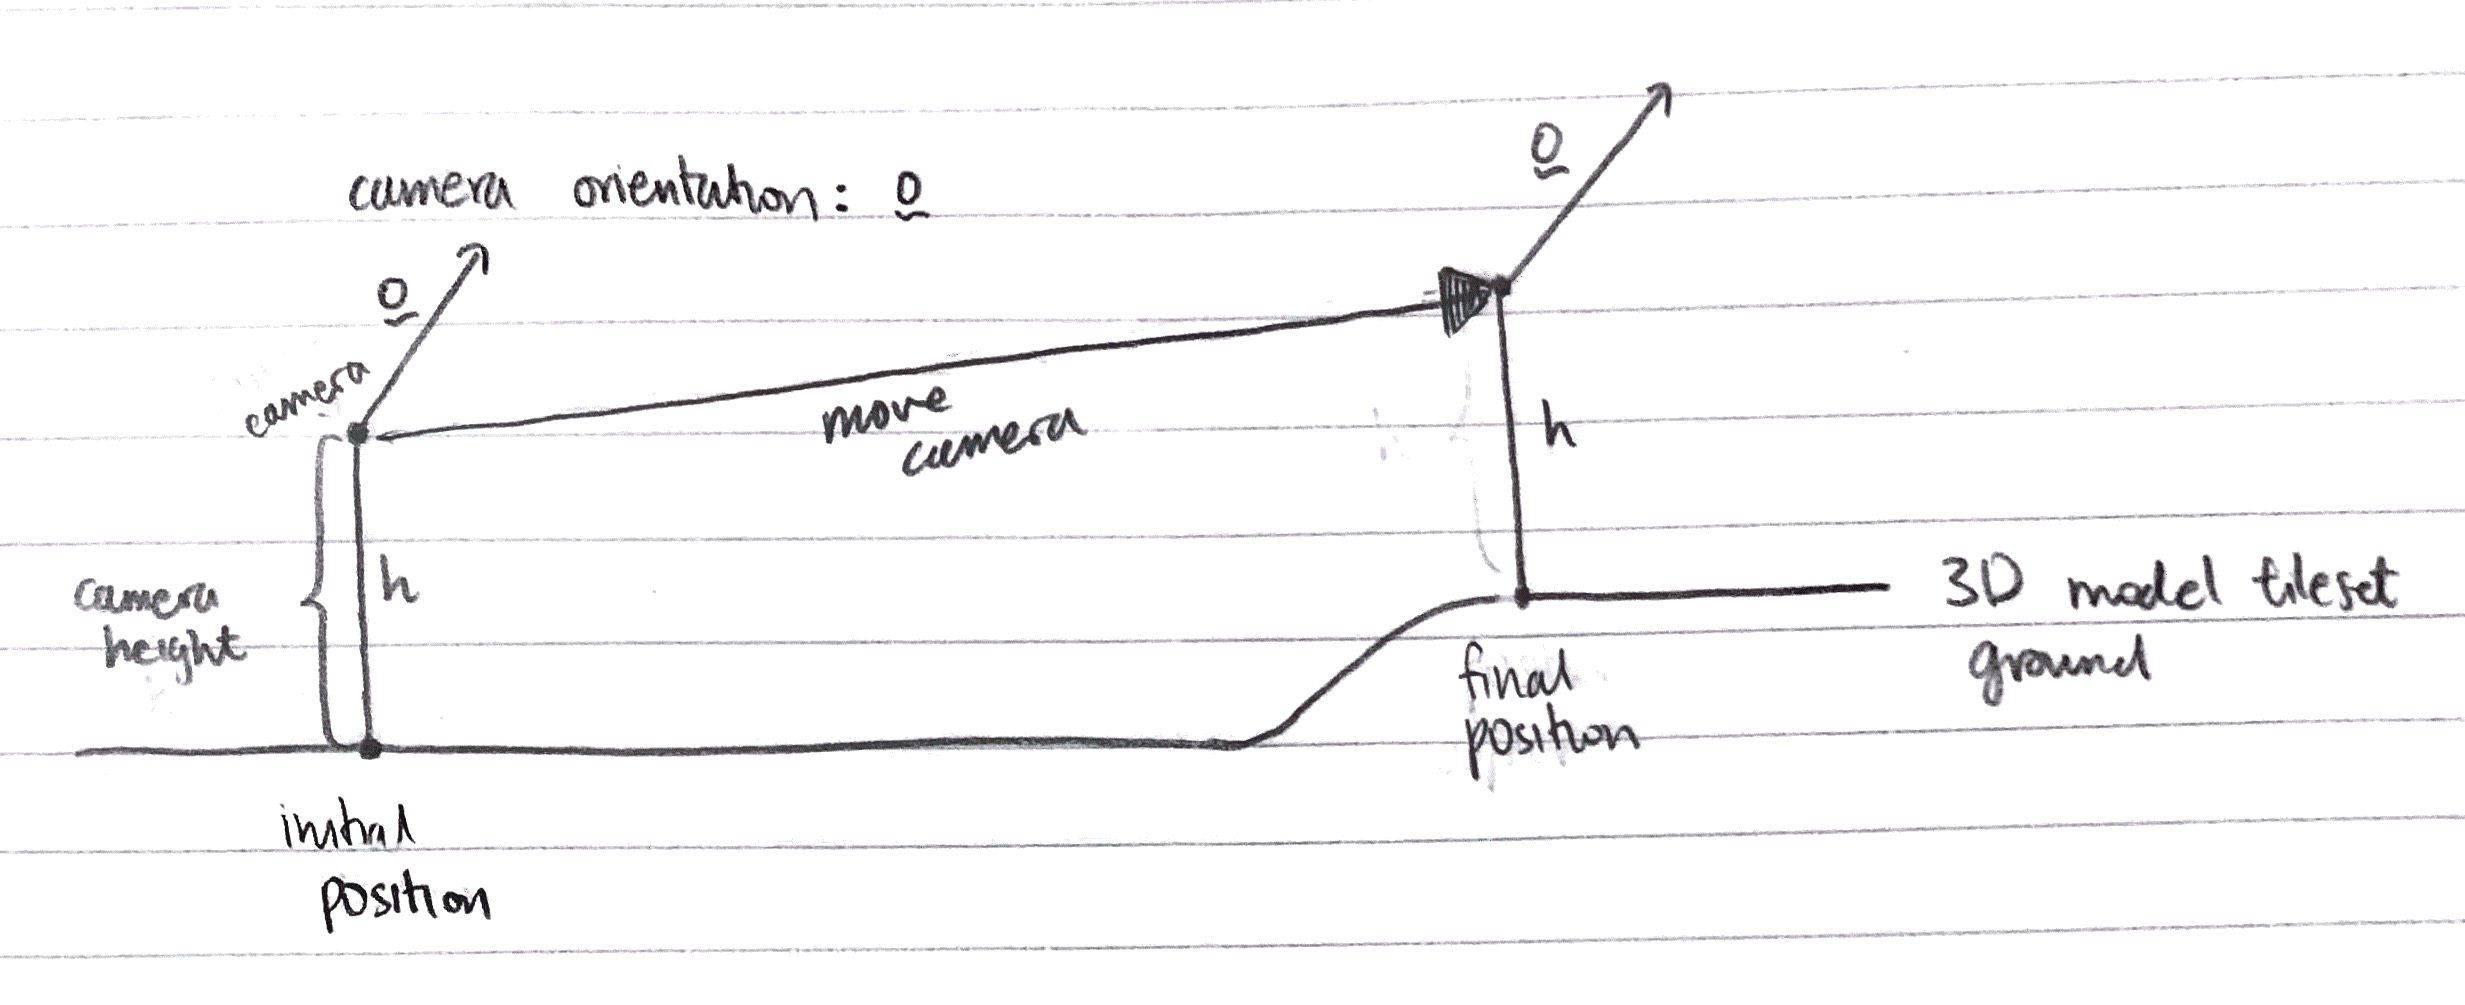 camera orientation: o
o
o
camera
move
camera
h
camera
height
h
3D model tileset
ground
final
position
initial
position